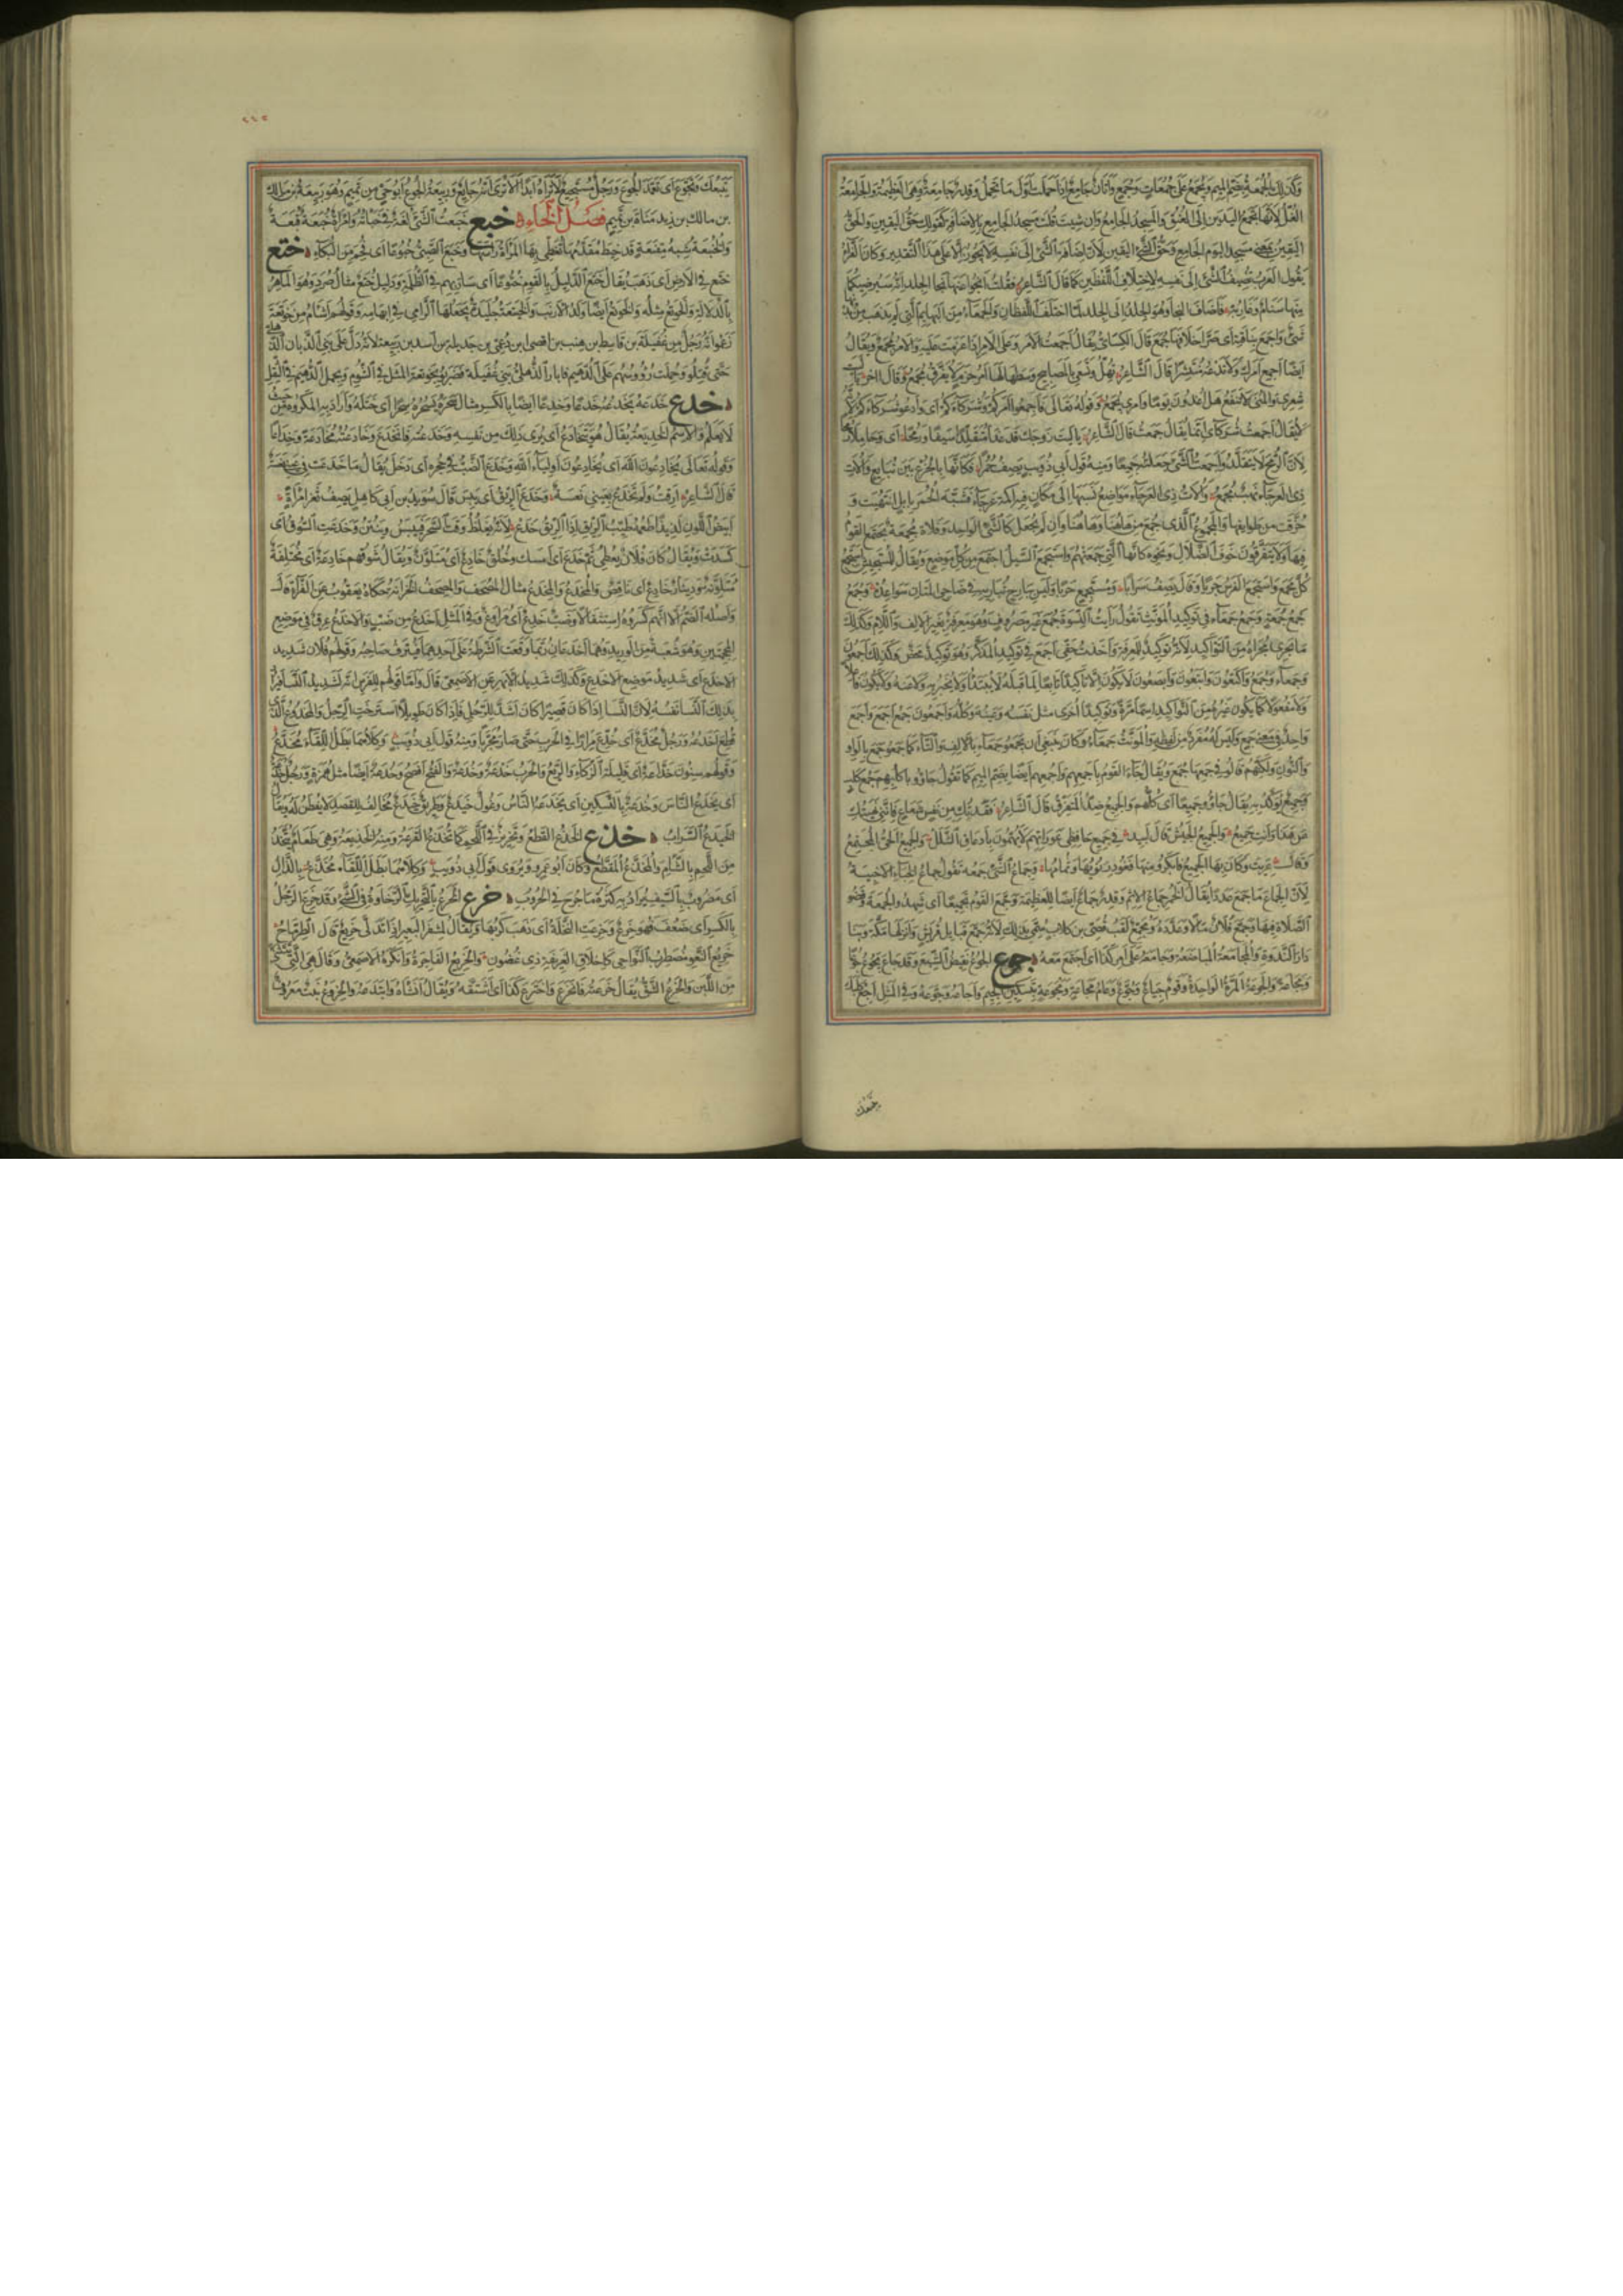 وَكَذلِكَ الْجُمُعَةُ بِضَمِّ الْمِيمِ وَيُجْمَعُ عَلَى جُمُعَاتٍ وَجُمَعٍ وَأَتَانٌ جَامِعٌ إِذَا حَمَلَتْ أَوَّلَ مَا تَحْمِلُ وَقِدْرٌ جَامِعَةٌ وَهِيَ الْعَظِيمَةُ وَالْجَامِعَةُ
الْغُلُّ لِأَنَّهَا تَجْمَعُ الْيَدَيْنِ إِلَى الْعُنُقِ وَالْمَسْجِدُ الْجَامِعُ وَإِنْ شِئْتَ قُلْتَ مَسْجِدُ الْجَامِعِ بِالْإِضَافَةِ كَقَوْلِكَ حَقُّ الْيَقِينِ وَالْحَقُّ
الْيَقِينُ بِمَعْنَى مَسْجِدِ الْيَوْمِ الْجَامِعِ وَحَقِّ الشَّيْءِ الْيَقِينِ لِأَنَّ إِضَافَةَ الشَّيْءِ إِلَى نَفْسِهِ لَا يَجُوزُ إِلَّا عَلَى هَذَا التَّقْدِيرِ وَكَانَ الْفَرَّاءُ
يَقُولُ الْعَرَبُ تُضِيفُ الشَّيْءَ إِلَى نَفْسِهِ لِاخْتِلَافِ اللَّفْظَيْنِ كَمَا قَالَ الشَّاعِرُ فَقُلْتُ انْجُوَا عَنْهَا نَجَا الْجِلْدِ إِنَّهُ سَيُرْضِيكُمَا
مِنْهَا سَنَامٌ وَغَارِبُهْ فَأَضَافَ النَّجَا وَهُوَ الْجِلْدُ إِلَى الْجِلْدِ لَمَّا اخْتَلَفَ اللَّفْظَانِ وَالْجَمْعَاءُ مِنَ الْبَهَائِمِ الَّتِي لَمْ يَذْهَبْ مِنْ بَدَنِهَا
شَيْءٌ وَأَجْمَعَ بِنَاقَتِهِ أَيْ صَرَّ أَخْلَافَهَا جُمَعَ قَالَ الْكِسَائِيُّ يُقَالُ أَجْمَعْتُ الْأَمْرَ وَعَلَى الْأَمْرِ إِذَا عَزَمْتَ عَلَيْهِ وَالْأَمْرُ مُجْمَعٌ وَيُقَالُ
أَيْضًا أَجْمِعْ أَمْرَكَ وَلَا تَدَعْهُ مُنْتَشِرًا قَالَ الشَّاعِرُ تُهِلُّ وَتَسْعَى بِالْمَصَابِيحِ وَسْطَهَا لَهَا أَمْرُ حَزْمٍ لَا يُفَرَّقُ مُجْمَعُ وَقَالَ آخَرُ يَا لَيْتَ
شِعْرِي وَالْمُنَى لَا تَنْفَعُ هَلْ أَغْدُوَنْ يَوْمًا وَأَمْرِي مُجْمَعُ وَقَوْلُهُ تَعَالَى فَأَجْمِعُوا أَمْرَكُمْ وَشُرَكَاءَكُمْ أَيْ وَادْعُوا شُرَكَاءَكُمْ لِأَنَّهُ
لَا يُقَالُ أَجْمَعْتُ شُرَكَائِي إِنَّمَا يُقَالُ جَمَعْتُ قَالَ الشَّاعِرُ يَا لَيْتَ زَوْجَكِ قَدْ غَدَا مُتَقَلِّدًا سَيْفًا وَرُمْحًا أَيْ وَحَامِلًا
لِأَنَّ الرُّمْحَ لَا يُتَقَلَّدُ وَأَجْمَعْتُ الشَّيْءَ جَعَلْتُهُ جَمِيعًا وَمِنْهُ قَوْلُ أَبِي ذُؤَيْبٍ يَصِفُ حُمُرًا فَكَأَنَّهَا بِالْجِزْعِ بَيْنَ نُبَايِعٍ وَأُولَاتِ
ذِي الْعَرْجَاءِ نَهْبٌ مُجْمَعُ وَأُولَاتُ ذِي الْعَرْجَاءِ مَوَاضِعُ نَسَبَهَا إِلَى مَكَانٍ فِيهِ أَكَمَةٌ عَرْجَاءُ فَشَبَّهَ الْحُمُرَ بِإِبِلٍ انْتُهِبَتْ وَ
خُرِّقَتْ مِنْ طَوَائِفِهَا وَالْمَجْمُوعُ الَّذِي جُمِعَ مِنْ هَاهُنَا وَهَاهُنَا وَإِنْ لَمْ يُجْعَلْ كَالشَّيْءِ الْوَاحِدِ وَفَلَاةٌ مُجْمِعَةٌ يَجْتَمِعُ الْقَوْمُ
فِيهَا وَلَا يَتَفَرَّقُونَ خَوْفَ الضَّلَالِ وَنَحْوِهِ كَأَنَّهَا الَّتِي جَمَعَتْهُمْ وَاسْتَجْمَعَ السَّيْلُ اجْتَمَعَ مِنْ كُلِّ مَوْضِعٍ وَيُقَالُ لِلْمُسْتَجِيشِ اسْتَجْمَعَ
كُلَّ مَجْمَعٍ وَاسْتَجْمَعَ الْفَرَسُ جَرْيًا وَقَالَ يَصِفُ سَرَابًا وَمُسْتَجْمِعٍ جَرْيًا وَلَيْسَ بِبَارِحٍ تُبَارِيهِ فِي ضَاحِي الْمِتَانِ سَوَاعِدُهْ وَجُمَعُ
جَمْعُ جُمْعَةٍ وَجَمْعُ جَمْعَاءَ فِي تَوْكِيدِ الْمُؤَنَّثِ تَقُولُ رَأَيْتُ النِّسْوَةَ جُمَعَ غَيْرَ مَصْرُوفٍ وَهُوَ مَعْرِفَةٌ بِغَيْرِ الْأَلِفِ وَاللَّامِ وَكَذَلِكَ
مَا يَجْرِي مَجْرَاهُ مِنَ التَّوَاكِيدِ لِأَنَّهُ تَوْكِيدٌ لِلْمَعْرِفَةِ وَأَخَذْتُ حَقِّي أَجْمَعَ فِي تَوْكِيدِ الْمُذَكَّرِ وَهُوَ تَوْكِيدٌ مَحْضٌ وَكَذَلِكَ أَجْمَعُونَ
وَجَمْعَاءُ وَجُمَعُ وَأَكْتَعُونَ وَأَبْتَعُونَ وَأَبْصَعُونَ لَا يَكُونُ إِلَّا تَأْكِيدًا تَابِعًا لِمَا قَبْلَهُ لَا يُبْتَدَأُ وَلَا يُخْبَرُ بِهِ وَلَا عَنْهُ وَلَا يَكُونُ فَاعِلًا
وَلَا مَفْعُولًا كَمَا يَكُونُ غَيْرُهُ مِنَ التَّوَاكِيدِ اسْمًا مَرَّةً وَتَوْكِيدًا أُخْرَى مِثْلُ نَفْسِهِ وَعَيْنِهِ وَكُلِّهِ وَأَجْمَعُونَ جَمْعُ أَجْمَعَ وَأَجْمَعُ
وَاحِدٌ فِي مَعْنَى جَمْعٍ وَلَيْسَ لَهُ مُفْرَدٌ مِنْ لَفْظِهِ وَالْمُؤَنَّثُ جَمْعَاءُ وَكَانَ يَنْبَغِي أَنْ يَجْمَعُوا جَمْعَاءَ بِالْأَلِفِ وَالتَّاءِ كَمَا جَمَعُوا أَجْمَعَ بِالْوَاوِ
وَالنُّونِ وَلَكِنَّهُمْ قَالُوا فِي جَمْعِهَا جُمَعُ وَيُقَالُ جَاءَ الْقَوْمُ بِأَجْمَعِهِمْ وَأَجْمُعِهِمْ أَيْضًا بِضَمِّ الْمِيمِ كَمَا تَقُولُ جَاؤُوا بِأَكْلُبِهِمْ جَمْعِ كَلْبٍ
وَجَمِيعٌ يُؤَكَّدُ بِهِ يُقَالُ جَاؤُوا جَمِيعًا أَيْ كُلُّهُمْ وَالْجَمِيعُ ضِدُّ الْمُتَفَرِّقِ قَالَ الشَّاعِرُ فَقَدْتُكِ مِنْ نَفْسٍ شَعَاعٍ فَإِنَّنِي نَهَيْتُكِ
عَنْ هَذَا وَأَنْتِ جَمِيعُ وَالْجَمِيعُ الْجَيْشُ قَالَ لَبِيدٌ فِي جَمِيعٍ حَافِظِي عَوْرَاتِهِمْ لَا يَهُمُّونَ بِإِدْعَاقِ الشَّلَلْ وَالْجَمِيعُ الْحَيُّ الْمُجْتَمِعُ
وَقَالَ عَرِيَتْ وَكَانَ بِهَا الْجَمِيعُ فَأَبْكَرُوا مِنْهَا فَغُودِرَ نُؤْيُهَا وَثُمَامُهَا وَجِمَاعُ الشَّيْءِ جَمْعُهُ تَقُولُ جِمَاعُ الْخِبَاءِ الْأَخْبِيَةُ
لِأَنَّ الْجِمَاعَ مَا جَمَعَ عَدَدًا يُقَالُ الْخَمْرُ جِمَاعُ الْإِثْمِ وَقِدْرٌ جِمَاعٌ أَيْضًا لِلْعَظِيمَةِ وَجَمَّعَ الْقَوْمُ تَجْمِيعًا أَيْ شَهِدُوا الْجُمُعَةَ وَقَضَوُا
الصَّلَاةَ فِيهَا وَجَمَّعَ فُلَانٌ مَالًا وَعَدَّدَهُ وَمُجَمِّعٌ لَقَبُ قُصَيِّ بْنِ كِلَابٍ سُمِّيَ بِذَلِكَ لِأَنَّهُ جَمَّعَ قَبَائِلَ قُرَيْشٍ وَأَنْزَلَهَا مَكَّةَ وَبَنَا
دَارَ النَّدْوَةِ وَالْمُجَامَعَةُ الْمُبَاضَعَةُ وَجَامَعَهُ عَلَى أَمْرِ كَذَا أَيِ اجْتَمَعَ مَعَهُ جوع الْجُوعُ نَقِيضُ الشِّبَعِ وَقَدْ جَاعَ يَجُوعُ جُوعًا
وَمَجَاعَةً وَالْجَوْعَةُ الْمَرَّةُ الْوَاحِدَةُ وَقَوْمٌ جِيَاعٌ وَجُوَّعٌ وَعَامُ مَجَاعَةٍ وَمَجْوَعَةٍ بِتَسْكِينِ الْجِيمِ وَأَجَاعَهُ وَجَوَّعَهُ وَفِي الْمَثَلِ أَجِعْ كَلْبَكَ
يَتْبَعْكَ
يَتْبَعْكَ وَتَجَوَّعَ أَيْ تَعَمَّدَ الْجُوعَ وَرَجُلٌ مُسْتَجِيعٌ لَا تَرَاهُ أَبَدًا إِلَّا تَرَى أَنَّهُ جَائِعٌ وَرَبِيعَةُ الْجُوعِ أَبُو حَيٍّ مِنْ تَمِيمٍ وَهُوَ رَبِيعَةُ بْنُ مَالِكِ
بْنِ مَالِكِ بْنِ زَيْدِ مَنَاةَ بْنِ تَمِيمٍ فَصْلُ الْخَاءِ خبع خَبَعْتُ الشَّيْءَ لُغَةٌ فِي خَبَأْتُهُ وَامْرَأَةٌ خُبَعَةٌ قُبَعَةٌ
وَالْخُنْبُعَةُ شِبْهُ مِقْنَعَةٍ قَدْ خِيطَ مُقَدَّمُهَا تُغَطِّي بِهَا الْمَرْأَةُ رَأْسَهَا وَخَبَعَ الصَّبِيُّ خُبُوعًا أَيْ فُحِمَ مِنَ الْبُكَاءِ ختع
خَتَعَ فِي الْأَرْضِ أَيْ ذَهَبَ يُقَالُ خَتَعَ الدَّلِيلُ بِالْقَوْمِ خُتُوعًا أَيْ سَارَ بِهِمْ فِي الظُّلْمَةِ وَدَلِيلٌ خُتَعٌ مِثَالُ صُرَدٍ وَهُوَ الْمَاهِرُ
بِالدَّلَالَةِ وَالْخَوْتَعُ مِثْلُهُ وَالْخَوْتَعُ أَيْضًا وَلَدُ الْأَرْنَبِ وَالْخَيْتَعَةُ جُلَيْدَةٌ يَجْعَلُهَا الرَّامِي فِي إِبْهَامِهِ وَقَوْلُهُمْ أَشْأَمُ مِنْ خَوْتَعَةَ
زَعَمُوا أَنَّهُ رَجُلٌ مِنْ غُفَيْلَةَ بْنِ قَاسِطِ بْنِ هِنْبِ بْنِ أَفْصَى ابْنِ دُعْمِيِّ بْنِ جَدِيلَةَ بْنِ أَسَدِ بْنِ رَبِيعَةَ لِأَنَّهُ دَلَّ عَلَى بَنِي الزَّبَّانِ الذُّهْلِيِّ
حَتَّى قُتِلُوا وَحُمِلَتْ رُؤُوسُهُمْ عَلَى الدُّهَيْمِ فَأَبَارَ الذُّهْلِيُّ بَنِي غُفَيْلَةَ فَضَرَبُوا بِخَوْتَعَةَ الْمَثَلَ فِي الشُّؤْمِ وَبِحِمْلِ الدُّهَيْمِ فِي الثِّقْلِ
خدع خَدَعَهُ يَخْدَعُهُ خَدْعًا وَخِدْعًا أَيْضًا بِالْكَسْرِ مِثَالُ سَحَرَهُ يَسْحَرُهُ سِحْرًا أَيْ خَتَلَهُ وَأَرَادَ بِهِ الْمَكْرُوهَ مِنْ حَيْثُ
لَا يَعْلَمُ وَالِاسْمُ الْخَدِيعَةُ يُقَالُ هُوَ يَتَخَادَعُ أَيْ يُرِي ذَلِكَ مِنْ نَفْسِهِ وَخَدَعْتُهُ فَانْخَدَعَ وَخَادَعْتُهُ مُخَادَعَةً وَخِدَاعًا
وَقَوْلُهُ تَعَالَى يُخَادِعُونَ اللَّهَ أَيْ يُخَادِعُونَ أَوْلِيَاءَ اللَّهِ وَخَدَعَ الضَّبُّ فِي جُحْرِهِ أَيْ دَخَلَ يُقَالُ مَا خَدَعَتْ فِي عَيْنِي نَعْسَةٌ
قَالَ الشَّاعِرُ أَرِقْتُ وَلَمْ تَخْدَعْ بِعَيْنَيَّ نَعْسَةٌ وَخَدَعَ الرِّيقُ أَيْ يَبِسَ قَالَ سُوَيْدُ بْنُ أَبِي كَاهِلٍ يَصِفُ ثَغْرَ امْرَأَةٍ
أَبْيَضُ اللَّوْنِ لَذِيذًا طَعْمُهُ طَيِّبُ الرِّيقِ إِذَا الرِّيقُ خَدَعْ لِأَنَّهُ يَغْلُظُ وَقْتَ السَّحَرِ فَيَيْبَسُ وَيُنْتِنُ وَخَدَعَتِ السُّوقُ أَيْ
كَسَدَتْ وَيُقَالُ كَانَ فُلَانٌ يُعْطِي ثُمَّ خَدَعَ أَيْ أَمْسَكَ وَخُلُقٌ خَادِعٌ أَيْ مُتَلَوِّنٌ وَيُقَالُ سُوقُهُمْ خَادِعَةٌ أَيْ مُخْتَلِفَةٌ
مُتَلَوِّنَةٌ وَدِينَارٌ خَادِعٌ أَيْ نَاقِصٌ وَالْمُخْدَعُ وَالْمِخْدَعُ مِثَالُ الْمُصْحَفِ وَالْمِصْحَفِ الْخِزَانَةُ حَكَاهُ يَعْقُوبُ عَنِ الْفَرَّاءِ قَالَ
وَأَصْلُهُ الضَّمُّ إِلَّا أَنَّهُمْ كَسَرُوهُ اسْتِثْقَالًا وَضَبٌّ خَدِعٌ أَيْ مُرَاوِغٌ وَفِي الْمَثَلِ أَخْدَعُ مِنْ ضَبٍّ وَالْأَخْدَعُ عِرْقٌ فِي مَوْضِعِ
الْمِحْجَمَتَيْنِ وَهُوَ شُعْبَةٌ مِنَ الْوَرِيدِ وَهُمَا أَخْدَعَانِ رُبَّمَا وَقَعَتِ الشَّرْطَةُ عَلَى أَحَدِهِمَا فَيُنْزَفُ صَاحِبُهُ وَقَوْلُهُمْ فُلَانٌ شَدِيدُ
الْأَخْدَعِ أَيْ شَدِيدُ مَوْضِعِ الْأَخْدَعِ وَكَذَلِكَ شَدِيدُ الْأَبْهَرِ عَنِ الْأَصْمَعِيِّ قَالَ وَأَمَّا قَوْلُهُمْ لِلْفَرَسِ إِنَّهُ لَشَدِيدُ النَّسَا فَيُرَادُ
بِذَلِكَ النَّسَا نَفْسُهُ لِأَنَّ النَّسَا إِذَا كَانَ قَصِيرًا كَانَ أَشَدَّ لِلرِّجْلِ فَإِذَا كَانَ طَوِيلًا اسْتَرْخَتِ الرِّجْلُ وَالْمَخْدُوعُ الَّذِي
قُطِعَ أَخْدَعُهُ وَرَجُلٌ مُخَدَّعٌ أَيْ خُدِعَ مِرَارًا فِي الْحَرْبِ حَتَّى صَارَ مُجَرَّبًا وَمِنْهُ قَوْلُ أَبِي ذُؤَيْبٍ وَكِلَاهُمَا بَطَلُ اللِّقَاءِ مُخَدَّعُ
وَقَوْلُهُمْ سِنُونَ خَدَّاعَةٌ أَيْ قَلِيلَةُ الزَّكَاءِ وَالرَّيْعِ وَالْحَرْبُ خَدْعَةٌ وَخُدْعَةٌ وَالْفَتْحُ أَفْصَحُ وَخُدَعَةٌ أَيْضًا مِثْلُ هُمَزَةٍ وَرَجُلٌ خُدَعَةٌ
أَيْ يَخْدَعُ النَّاسَ وَخُدْعَةٌ بِالتَّسْكِينِ أَيْ يَخْدَعُهُ النَّاسُ وَغُولٌ خَيْدَعٌ وَطَرِيقٌ خَيْدَعٌ مُخَالِفٌ لِلْقَصْدِ لَا يُفْطَنُ لَهُ وَيُقَالُ
الْخَيْدَعُ السَّرَابُ خذع الْخَذْعُ الْقَطْعُ وَتَحْزِيزٌ فِي اللَّحْمِ كَمَا تُخْذَعُ الْقَرْعَةُ وَمِنْهُ الْخَذِيعَةُ وَهِيَ طَعَامٌ يُتَّخَذُ
مِنَ اللَّحْمِ بِالشَّامِ وَالْمُخَذَّعُ الْمُقَطَّعُ وَكَانَ أَبُو عَمْرٍو يَرْوِي قَوْلَ أَبِي ذُؤَيْبٍ وَكِلَاهُمَا بَطَلُ اللِّقَاءِ مُخَذَّعُ بِالذَّالِ
أَيْ مَضْرُوبٌ بِالسَّيْفِ يُرَادُ بِهِ كَثْرَةُ مَا جُرِحَ فِي الْحُرُوبِ خرع الْخَرَعُ بِالتَّحْرِيكِ الرَّخَاوَةُ فِي الشَّيْءِ وَقَدْ خَرِعَ الرَّجُلُ
بِالْكَسْرِ أَيْ ضَعُفَ فَهُوَ خَرِعٌ وَخَرِعَتِ النَّخْلَةُ أَيْ ذَهَبَ كَرَبُهَا وَيُقَالُ لِمِشْفَرِ الْبَعِيرِ إِذَا تَدَلَّى خَرِيعٌ قَالَ الطِّرِمَّاحُ
خَرِيعَ النَّعْوِ مُضْطَرِبَ النَّوَاحِي كَأَخْلَاقِ الْغَرِيفَةِ ذِي غُضُونِ وَالْخَرِيعُ الْفَاجِرَةُ وَأَنْكَرَهُ الْأَصْمَعِيُّ وَقَالَ هِيَ الَّتِي تَتَثَنَّى
مِنَ اللِّينِ وَالْخَرْعُ الشَّقُّ يُقَالُ خَرَعْتُهُ فَانْخَرَعَ وَاخْتَرَعَ كَذَا أَيِ اشْتَقَّهُ وَيُقَالُ أَنْشَأَهُ وَابْتَدَعَهُ وَالْخِرْوَعُ نَبْتٌ مَعْرُوفٌ